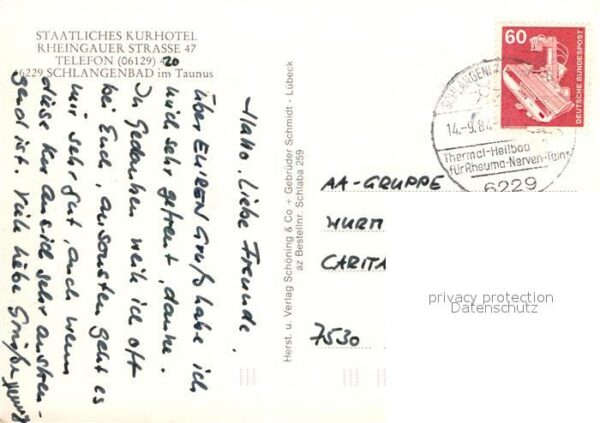 STAATLICHES KURHOTEL
RHEINGAUER STRASSE 47
TELEFON (06129) 4 20
6229 SCHLANGENBAD im Taunus
Hallo, liebe Freunde,
über EUREN Gruß habe ich
mich sehr gefreut, danke.
In Gedanken weile ich oft
bei Euch, ansonsten geht es
mir sehr gut, auch wenn
diese Kur an sich sehr anstren-
gend ist. Viele liebe Grüße
Herst. u. Verlag Schöning & Co + Gebrüder Schmidt - Lübeck
az Bestellnr. Schlaba 259
60
DEUTSCHE BUNDESPOST
14.-9.84
Thermal-Heilbad
für Rheuma-Nerven-
6229
AA-GRUPPE
WURM
CARITA
7530
privacy protection
Datenschutz